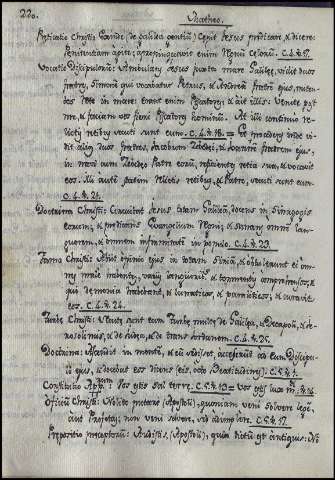 220. Mattheo.
Predicatio Christi Cepit Jesus predicare, et dicere:
Penitentiam agite; appropinquavit enim Regnum Celorum. C. 4. v. 17.
Vocatio Discipulorum: Ambulans Jesus juxta mare Galilee, vidit duos
fratres, Simonem qui vocabatur Petrus, et Andream fratrem ejus, mit-
tentes Rete in mare: erant enim Piscatores; et ait illis: Venite post
me, et faciam vos fieri Piscatores hominum. At illi continuo re-
lictis retibus secuti sunt eum. C. 4. v. 18. = Et procedens inde vi-
dit alios duos fratres, Jacobum Zebedei, et Joannem fratrem ejus,
in navi cum Zebedeo Patre eorum, reficientes retia sua, et vocavit
eos. Illi autem statim relictis retibus, et Patre, secuti sunt eum.
C. 4. v. 21.
Doctrina Christi: Circuibat Jesus totam Galileam, docens in Sinagogis
eorum, et predicans Evangelium Regni; et sanans omnem lan-
guorem, et omnem infirmitatem in populo. C. 4. v. 23.
Fama Christi: Abiit opinio ejus in totam Siriam, et obtulerunt ei om-
nes male habentes, variis languoribus, et tormentis comprehensos, et
qui demonia habebant, et lunaticos, et paraliticos, et curavit
eos. C. 4. v. 24.
Turbe Christi: Secute sunt eum Turbe multe de Galilea, et Decapoli, et de
Jerosolimis, et de Judea, et de trans Jordanem. C. 4. v. 25.
Doctrina: Ascendit in montem, et cum sedisset, accesserunt ad eum Discipu-
li ejus, et docebat eos dicens (eis, octo Beatitudines). C. 5. v. 1.
Constitutio Vos estis sal terre. C. 5. v. 13 = Vos estis lux v. 14.
Officium Christi: Nolite putare (Apostoli), quoniam veni solvere legem,
aut Prophetas; non veni solvere, sed adimplere. C. 5. v. 17.
Prepositio preceptorum: Audistis, (Apostoli), quia dictum est antiquis: No